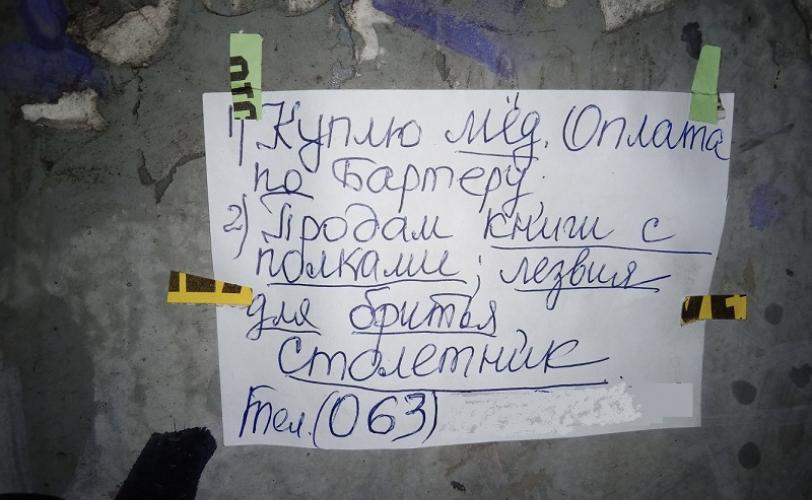 1) Куплю мёд. Оплата
по Бартеру.
2) Продам книги с
полками; лезвия
для бритья
Столетник
Тел. (063)